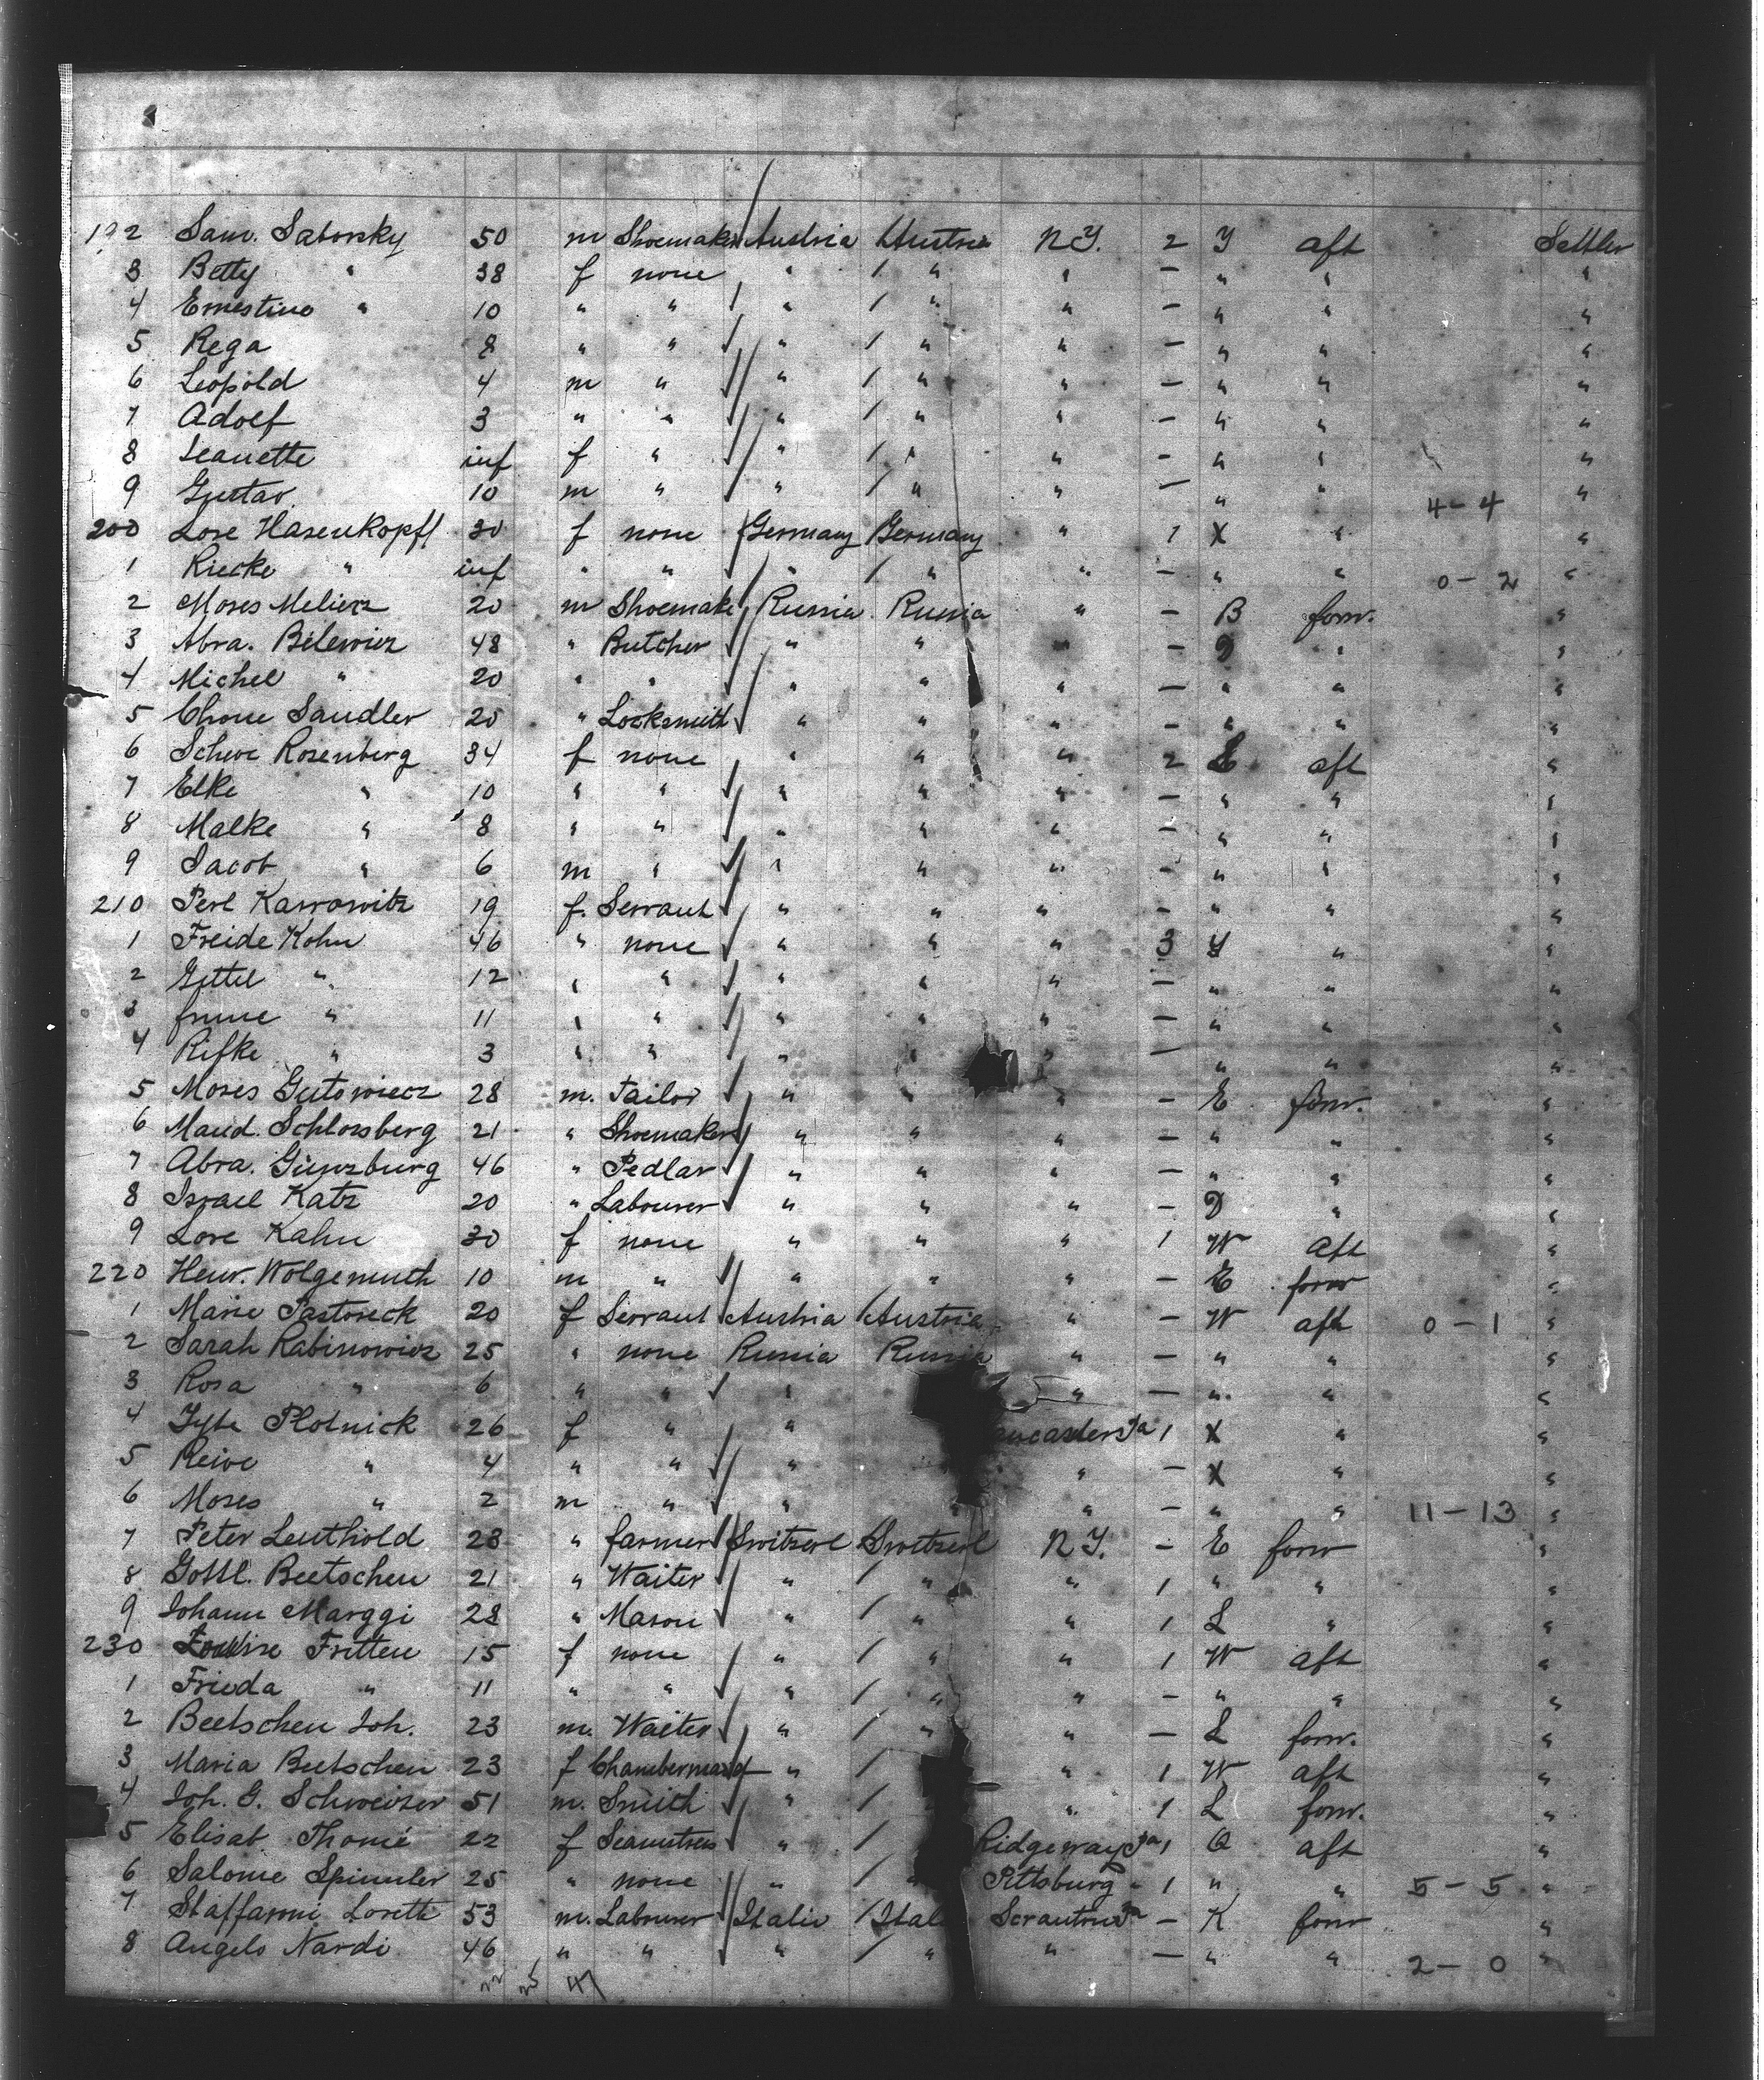 192 Sam. Saborsky 50 m Shoemaker Austria Austria N.Y. 2 Y aft Settler
3 Betty " 38 f none " " " - " " "
4 Ernestine " 10 " " " " " - " " "
5 Rega 8 " " " " " - " " "
6 Leopold 4 m " " " " - " " "
7 Adolf 3 " " " " " - " " "
8 Jeanette inf f " " " " - " " "
9 Gustav 10 m " " " " - " " 4-4 "
200 Lore Hasenkopff 30 f none Germany Germany " 1 X " "
1 Riecke " inf " " " " " - " " 0-2 "
2 Moses Melierz 20 m Shoemake Russia Russia " - B forw. "
3 Abra. Bilewicz 48 " Butcher " " " - D " "
4 Michel " 20 " " " " " - " " "
5 Chone Sandler 20 " Locksmith " " " - " " "
6 Scheve Rosenberg 34 f none " " " 2 E aft "
7 Elke " 10 " " " " " - " " "
8 Malke " 8 " " " " " - " " "
9 Jacob " 6 m " " " " - " " "
210 Perl Karrowitz 19 f. Servant " " " - " " "
1 Freide Kohn 46 " none " " " 3 Y " "
2 Gittel " 12 " " " " " - " " "
3 " 11 " " " " " - " " "
4 Rifke " 3 " " " " " - " " "
5 Moses Gutowiecz 28 m. Tailor " " " - E forw. "
6 Mand. Schlossberg 21 " Shoemaker " " " - " " "
7 Abra. Günzburg 46 " Pedlar " " " - " " "
8 Israel Katz 20 " Labourer " " " - D " "
9 Lore Kahn 30 f none " " " 1 W aft "
220 Heinr. Wolgemuth 10 m " " " " - E forw "
1 Marie Pastoreck 20 f Servant Austria Austria " - W aft 0-1 "
2 Sarah Rabinowicz 25 " none Russia Russia " - " " "
3 Rosa " 6 " " " " - " " "
4 Plotnick 26 f " " ancaster Pa 1 X " "
5 Reive " 4 " " " " - X " "
6 Moses " 2 m " " " " - " " 11-13 "
7 Peter Leuthold 23 " farmer Switzerl Switzerl N.Y. - E forw "
8 Gottl. Beetschen 21 " Waiter " " " 1 " " "
9 Johann Marggi 28 " Mason " " " 1 L " "
230 Louise Fritten 15 f none " " " 1 W aft "
1 Frieda " 11 " " " " " - " " "
2 Beetschen Joh. 23 m. Waiter " " " - L forw. "
3 Maria Beetschen 23 f Chambermaid " " 1 W aft "
4 Joh. G. Schweizer 51 m. Smith " " 1 L forw. "
5 Elisab. Thomé 22 f Seamstress " Ridgeway Pa 1 Q aft "
6 Salome Spinnler 25 " none " " Pittsburg " 1 " " 5-5 "
7 Staffanni Loretti 53 m. Labourer Italie Ital Scranton Pa - K forw "
8 Angelo Nardi 46 " " " " " - " " 2-0 "
47